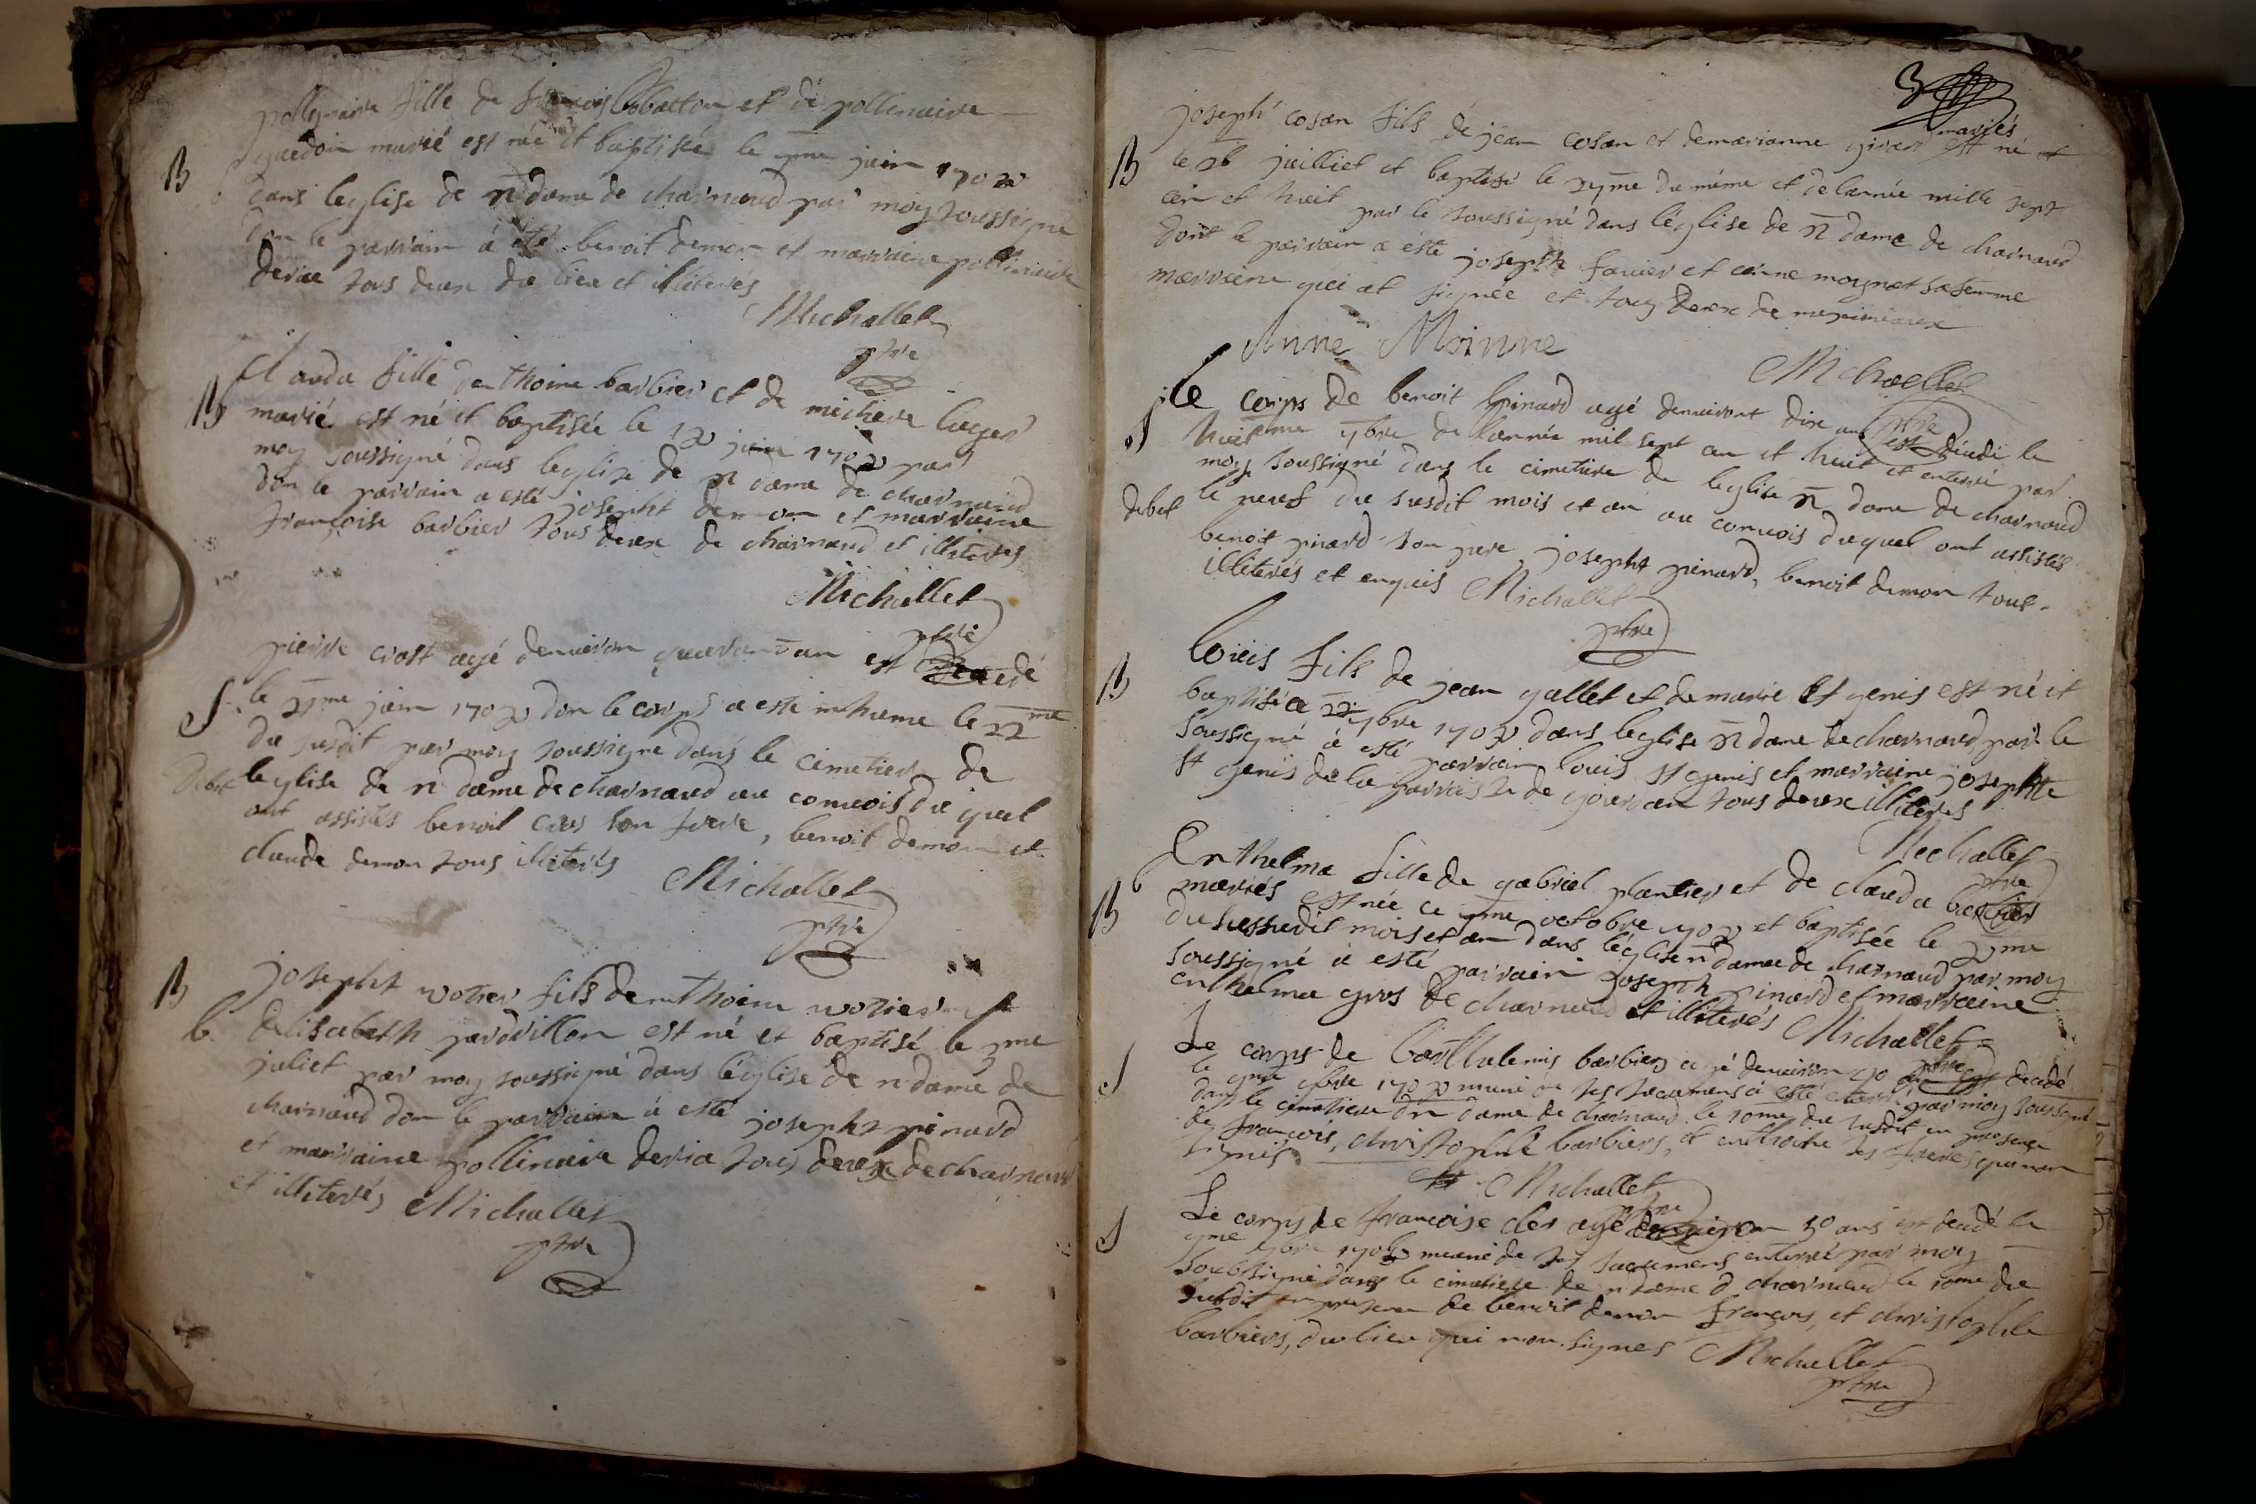 pollynaire fille de francois et de pollinaire
marié est née et baptisée le juin 1708
B
dans leglise de n dame de charnaud par moy soussigne
don le parrain à été benoit demon et marraine pollinaire
deria tous deux du lieu et illiterés
Michallet
ptre
Clauda fille danthoine barbier et de michiere leger
B
marié est né et baptisée le juin 1708 par
moy soussigné dans leglise de n dame de charnaud
don le parrain a esté josepht demon et marraine
françoise barbier tous deux de charnaud et illiterés
Michallet
ptre
pierre crost agé denuiron quarant an est decedé
S
le 21me juin 1708 don le corps a esté inhume le 22me
du susdit par moy soussigne dans le cimetiere de
leglise de n dame de charnaud au conuois du quel
ont assistés benoit cros son frere, benoit demon et
claude demon tous illiterés
Michallet
ptre
B
josepht fils demthoine
b
delisabeth est né et baptisé le me
juliet par moy soussigné dans l'église de n dame de
charnaud don le parrain à esté josepht pinard
et marraine pollinaire deria tous deux de charnaud
et illiterés Michallet
ptre
3
joseph cosan fils de jean cosan et demarianne mariés est né et
B
le 26 juilliet et baptisé le 27me du méme et delannée mille sept
cen et huit par le soussigné dans l'église de n dame de charnaud
dont le parrain a esté josepth et anne moynat sa femme
marraine qui at signée et tous deux de meximieux
Anne Moinne
Michallet
ptre
le corps de benoit pinard agé denuiront dix an est décédé le
S
huitme 7bre de lannée mil sept cen et huit et enterré par
moy soussigné dans le cimetiere de leglise n dame de charnaud
debet
le neuf du susdit mois et an au conuois duquel ont assistés
benoit pinard son pere josepht pinard, benoit demon tous
illiterés et enquis Michallet
ptre
B
louis fils de jean gallet et de marie st genis est né et
baptisé a 22 7bre 1708 dans leglise n dame de charnaud par le
soussigné à esté parrain louis st genis et marraine josephte
st genis de la parroisse de tous deux illiterés
Michallet
ptre
Enthelma fille de gabriel plantier et de clauda barbier
B
mariés est née ce me octobre 1708 et baptisée le me
du sussudit mois et an dans l'église n dame de charnaud par moy
soussigné à esté parrain joseph pinard et marraine
enthelma gros de charnaud et illiterés Michallet
ptre
Le corps de barthelemis barbier agé denuiron 40 decedé
S
le me 9bre 1708 muni de ses sacumens à esté enterré par moy soussigné
dans le cimetiere dn dame de charnaud le 10me du susdit en presence
de françois, christophle barbiers, et enthoine ses freres qui non
signés
Michallet
ptre
Le corps de françoise cler agé denuiron 50 ans est decedé le
S
me 9bre 1708 munie de ses sacumens enterré par moy
soubsigné dans le cimetiere de n dame d charnaud le 10me du
susdit en presence de benoit demon françois, et christophle
barbiers, du lieu qui non signés Michallet
ptre